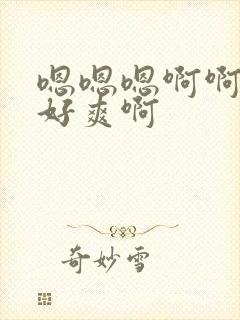 嗯嗯嗯啊啊
好爽啊
奇妙雪